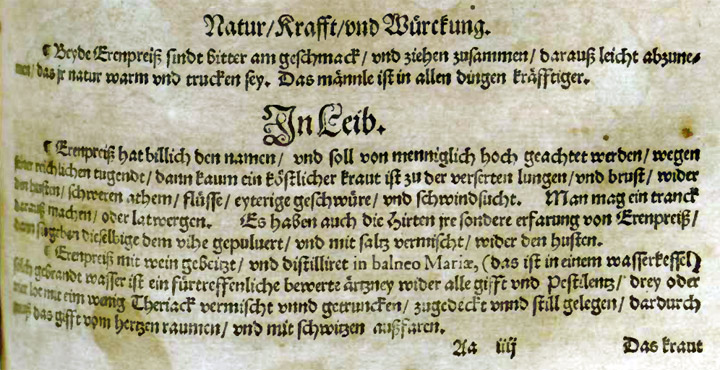 Natur/Krafft/vnd Würckung.
¶ Beyde Erenpreiß sindt bitter am geschmack/ vnd ziehen zusammen/ darauß leicht abzune-
men/das jr natur warm vnd trucken sey. Das männle ist in allen dingen kräfftiger.
In Leib.
¶ Erenpreiß hat billich den namen/ vnd soll von menniglich hoch geachtet werden/ wegen
seiner trefflichen tugende/ dann kaum ein köstlicher kraut ist zu der verserten lungen/vnd brust/ wider
den husten/ schweren athem/ flüsse/ eyterige geschwüre/ vnd schwindsucht. Man mag ein tranck
darauß machen/ oder latwergen. Es haben auch die Hirten jre sondere erfarung von Erenpreiß/
dann sie geben dieselbige dem vihe gepuluert/ vnd mit saltz vermischt/ wider den husten.
¶ Erenpreiß mit wein gebeitzt/ vnd distilliret in balneo Mariæ, (das ist in einem wasserkessel)
solch gebrandt wasser ist ein fürtreffenliche bewerte ärtzney wider alle gifft vnd Pestilentz/ drey oder
vier lot mit eim wenig Theriack vermischt vnnd getruncken/ zugedeckt vnnd still gelegen/ dardurch
muß das gifft vom hertzen raumen/ vnd mit schwitzen außfaren.
Aa iiij Das kraut